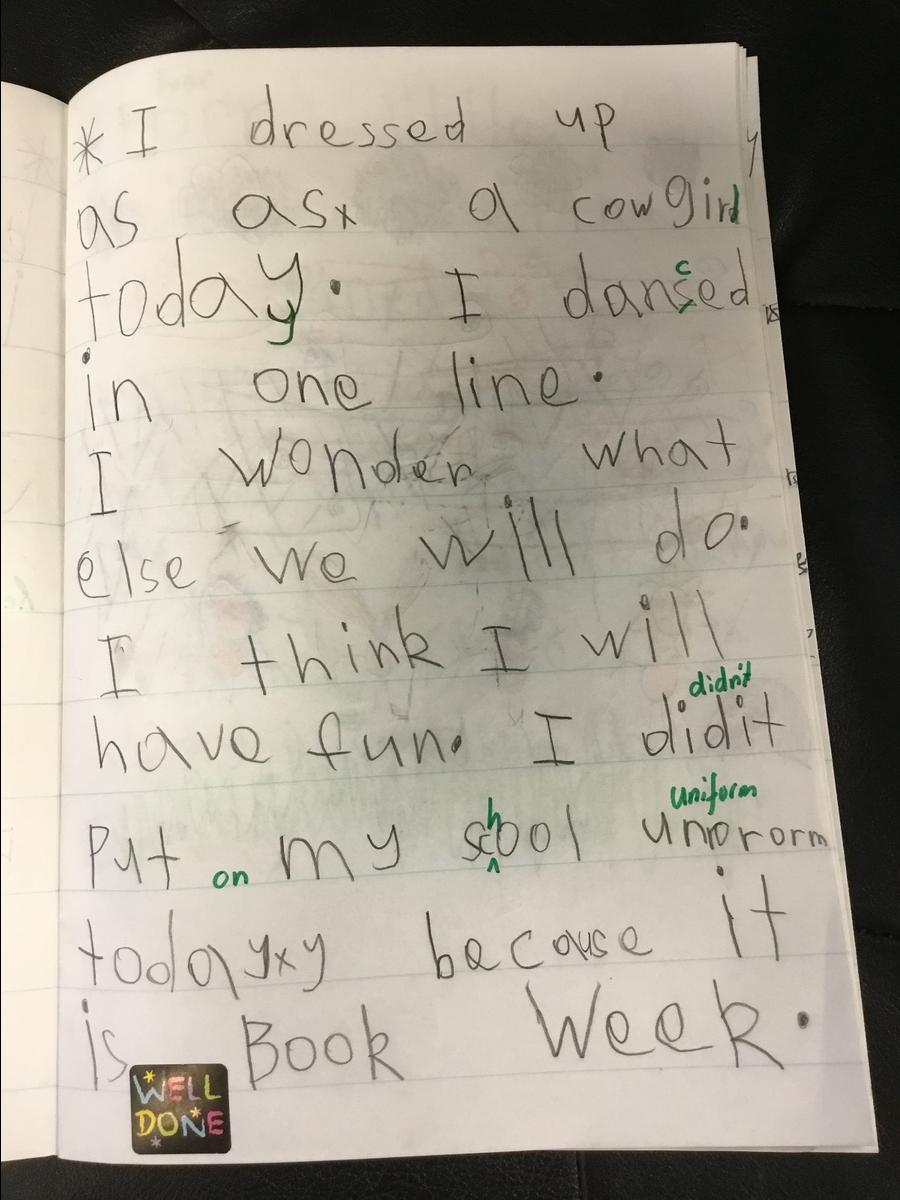 * I dressed up
as asx a cowgirl
today. I dansed
y c
in one line.
I wonder what
else we will do.
I think I will
didn't
have fun. I didit
uniform
Put on my school unprorm
todayyxy because it
is Book Week.
WELL
DONE